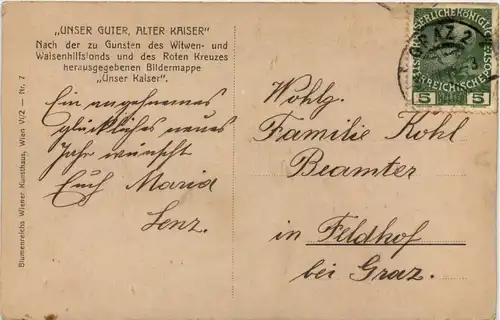 „UNSER GUTER, ALTER KAISER"
Nach der zu Gunsten des Witwen- und
Waisenhilfsfonds und des Roten Kreuzes
herausgegebenen Bildermappe
„Unser Kaiser".
Ein angenehmes
glückliches neues
Jahr wünscht
Euch Maria
Lenz.
Blumenreichs Wiener Kunsthaus, Wien VI/2 — Nr. 7
GRAZ 2
5 5
Wohlg.
Familie Kohl
Beamter
in Feldhof
bei Graz.